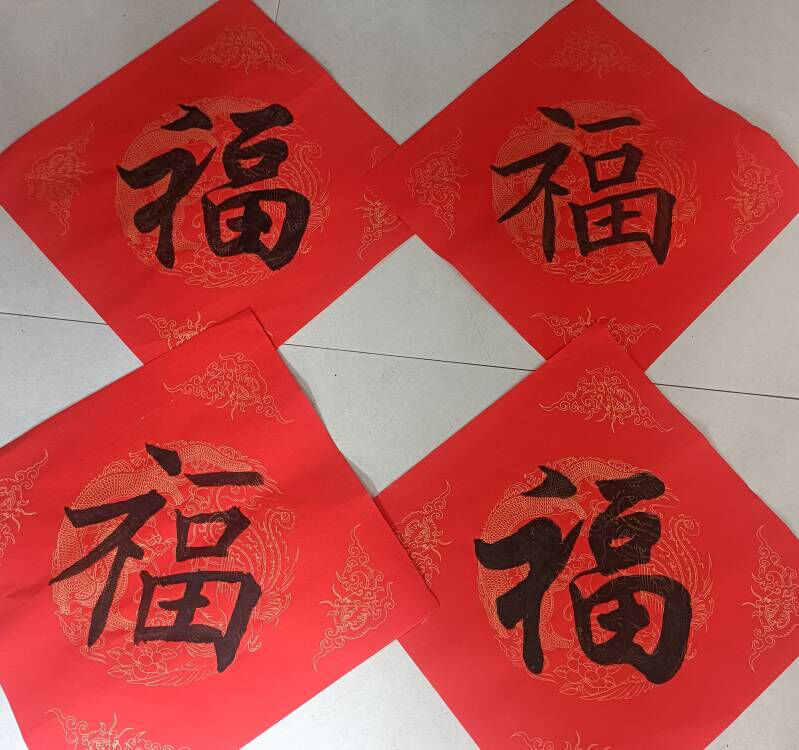 福
福
福
福